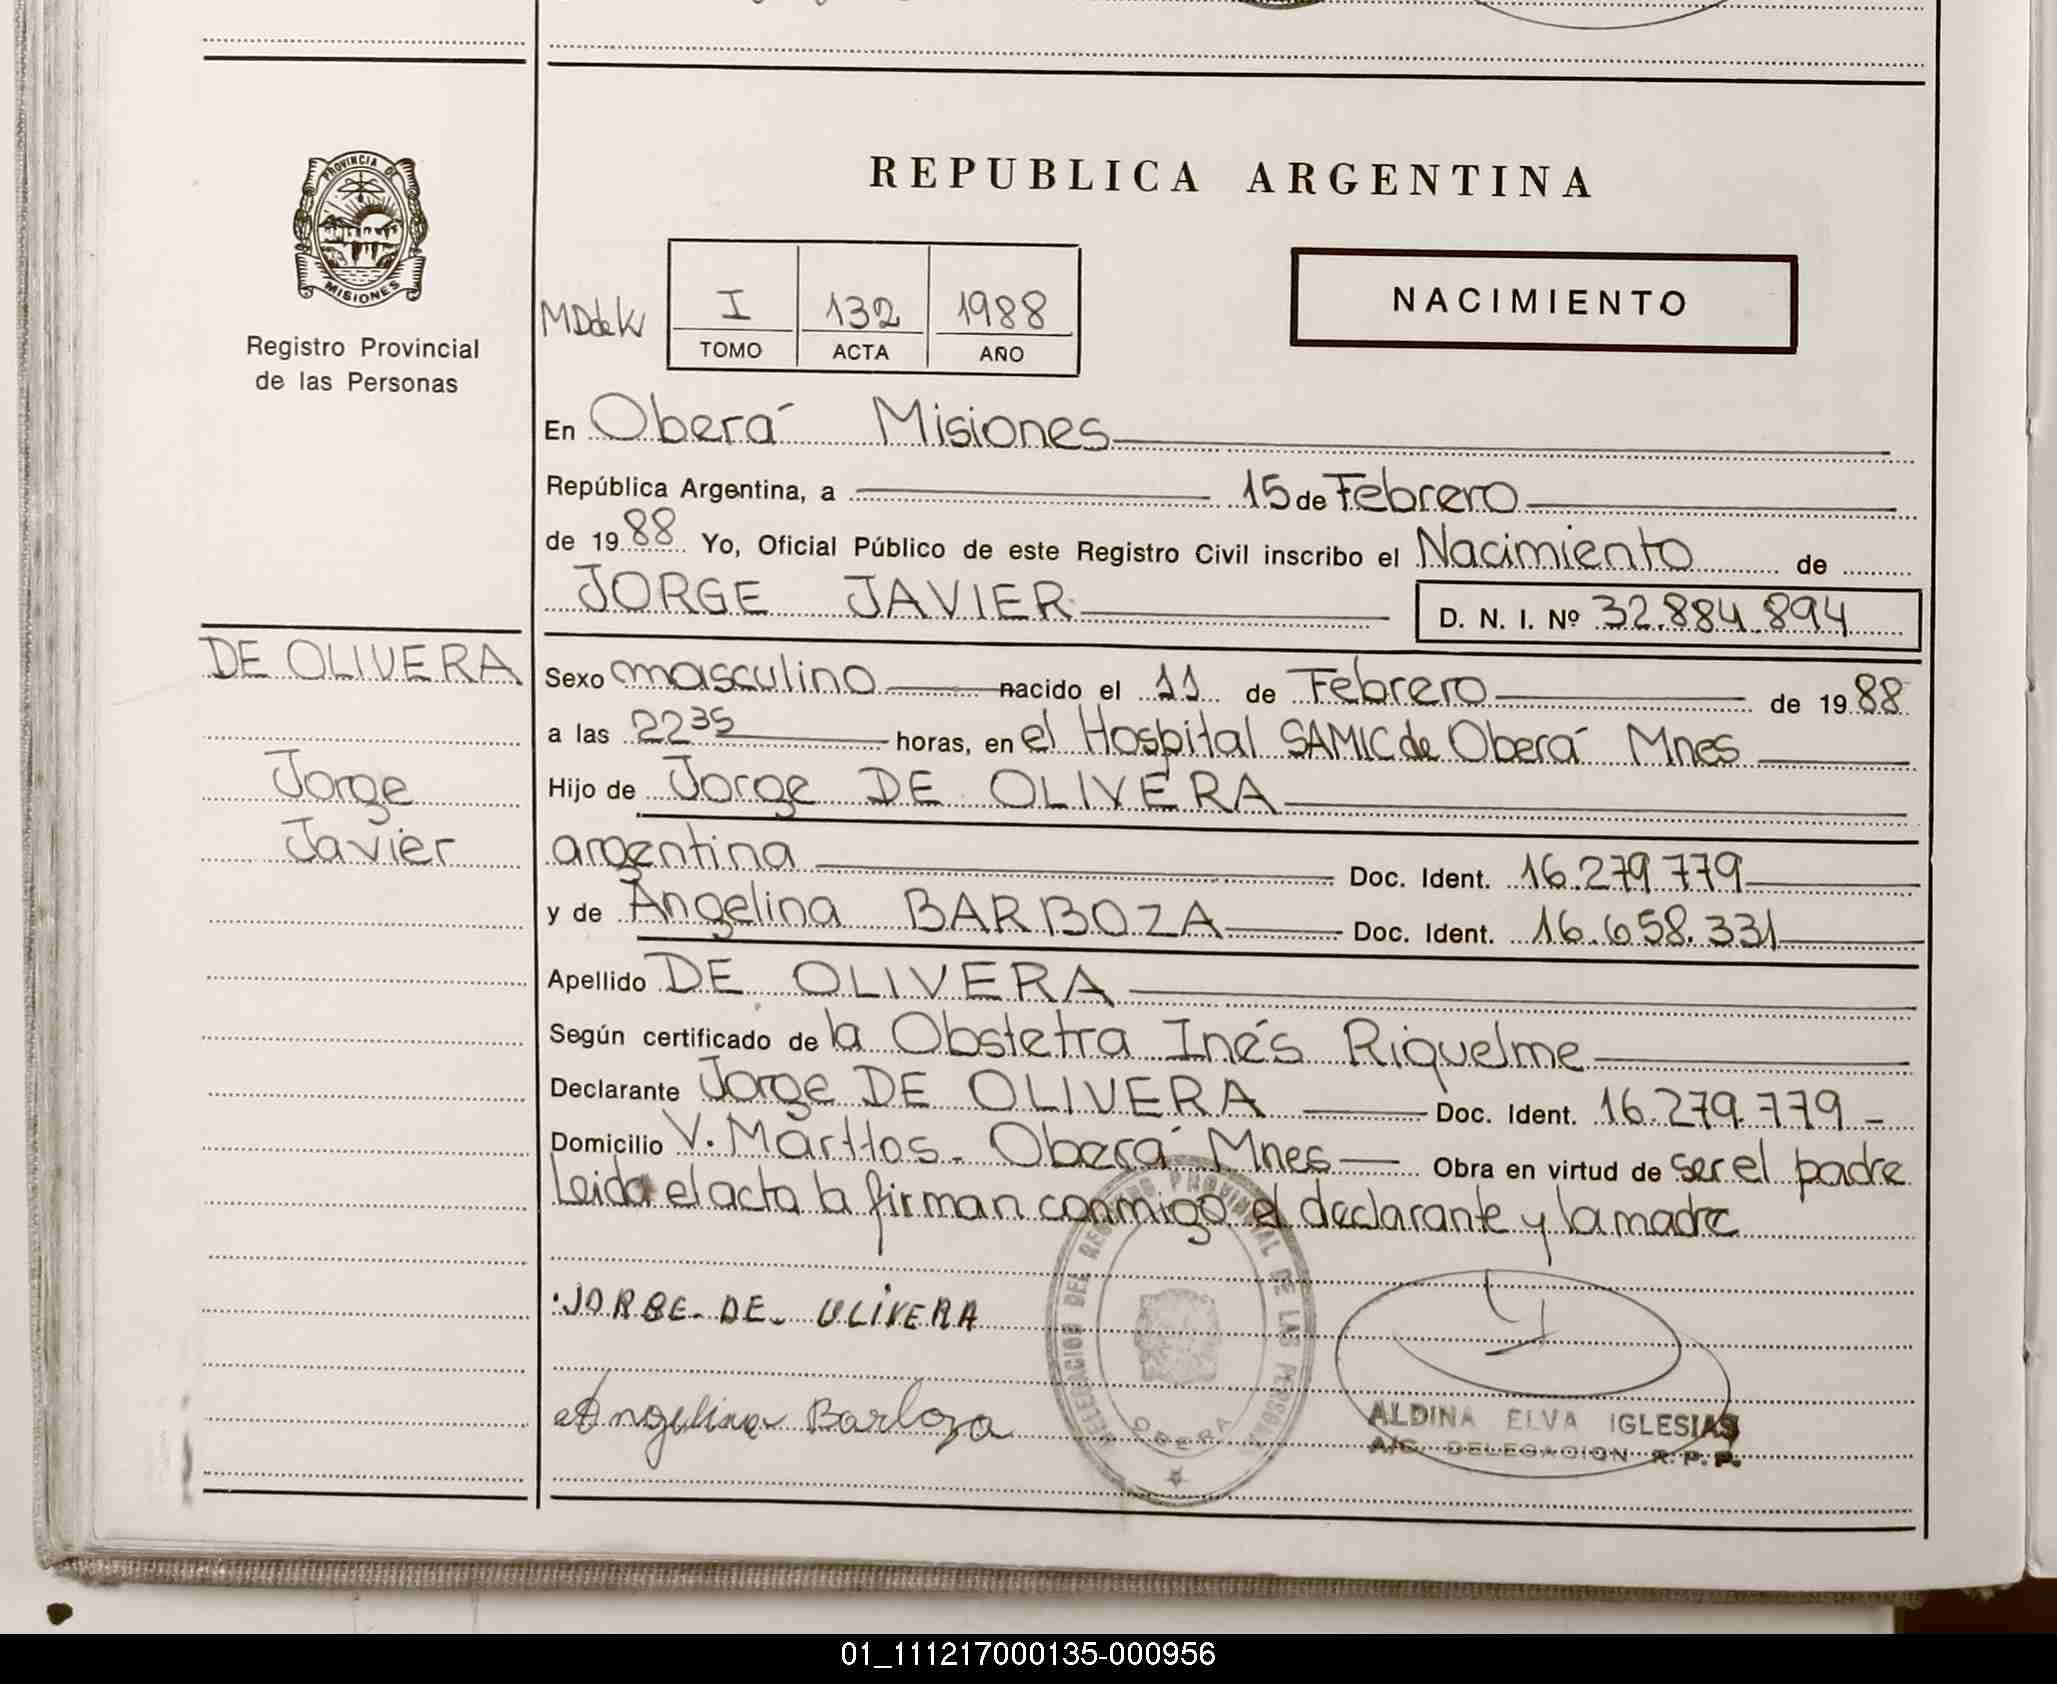 PROVINCIA DE
MISIONES
Registro Provincial
de las Personas
REPUBLICA ARGENTINA
I 132 1988
TOMO ACTA AÑO
NACIMIENTO
En Oberá Misiones
República Argentina, a 15 de Febrero
de 1988 Yo, Oficial Público de este Registro Civil inscribo el Nacimiento de
JORGE JAVIER D. N. I. Nº 32.884.894
DE OLIVERA
Jorge
Javier
Sexo masculino nacido el 11 de Febrero de 1988
a las 22 35 horas, en el Hospital SAMIC de Oberá Mnes
Hijo de Jorge DE OLIVERA
argentina Doc. Ident. 16.279.779
y de Angelina BARBOZA Doc. Ident. 16.658.331
Apellido DE OLIVERA
Según certificado de la Obstetra Inés Riquelme
Declarante Jorge DE OLIVERA Doc. Ident. 16.279.779
Domicilio V. Marttos - Oberá Mnes Obra en virtud de ser el padre
Leida el acta la firman conmigo el declarante y la madre
JORGE DE OLIVERA
Angelina Barboza
DELEGACION DEL REGISTRO PROVINCIAL DE LAS PERSONAS
OBERA
ALDINA ELVA IGLESIAS
A/C. DELEGACION R.P.P.
01_111217000135-000956